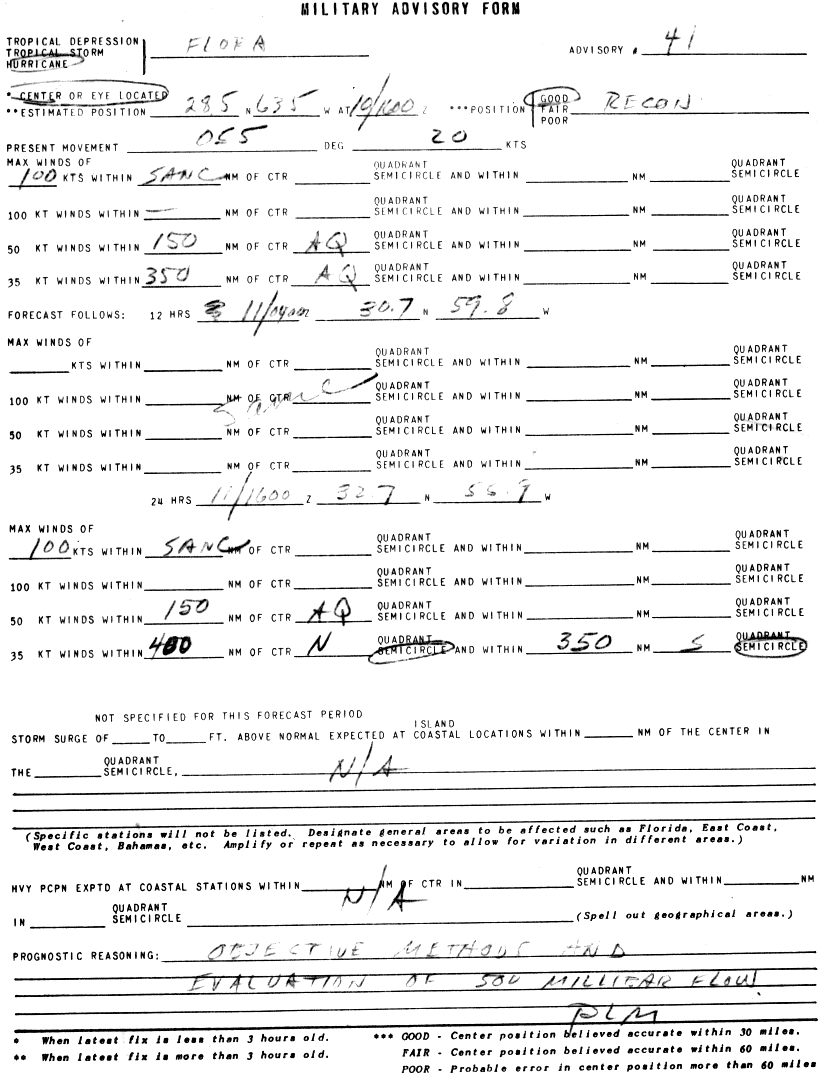 MILITARY ADVISORY FORM
TROPICAL DEPRESSION
TROPICAL STORM FLORA ADVISORY # 41
HURRICANE
* CENTER OR EYE LOCATED GOOD
**ESTIMATED POSITION 28.5 N 63.5 W AT 10/1600 Z ***POSITION FAIR RECON
POOR
PRESENT MOVEMENT 055 DEG 20 KTS
MAX WINDS OF QUADRANT QUADRANT
100 KTS WITHIN SANC NM OF CTR SEMICIRCLE AND WITHIN NM SEMICIRCLE
QUADRANT QUADRANT
100 KT WINDS WITHIN — NM OF CTR SEMICIRCLE AND WITHIN NM SEMICIRCLE
QUADRANT QUADRANT
50 KT WINDS WITHIN 150 NM OF CTR AQ SEMICIRCLE AND WITHIN NM SEMICIRCLE
QUADRANT QUADRANT
35 KT WINDS WITHIN 350 NM OF CTR AQ SEMICIRCLE AND WITHIN NM SEMICIRCLE
FORECAST FOLLOWS: 12 HRS 11/0400 30.7 N 59.8 W
MAX WINDS OF QUADRANT QUADRANT
KTS WITHIN NM OF CTR SEMICIRCLE AND WITHIN NM SEMICIRCLE
QUADRANT QUADRANT
100 KT WINDS WITHIN NM OF CTR SEMICIRCLE AND WITHIN NM SEMICIRCLE
QUADRANT QUADRANT
50 KT WINDS WITHIN NM OF CTR SEMICIRCLE AND WITHIN NM SEMICIRCLE
QUADRANT QUADRANT
35 KT WINDS WITHIN NM OF CTR SEMICIRCLE AND WITHIN NM SEMICIRCLE
24 HRS 11/1600 Z 32.7 N 55.9 W
MAX WINDS OF QUADRANT QUADRANT
100 KTS WITHIN SANC NM OF CTR SEMICIRCLE AND WITHIN NM SEMICIRCLE
QUADRANT QUADRANT
100 KT WINDS WITHIN NM OF CTR SEMICIRCLE AND WITHIN NM SEMICIRCLE
QUADRANT QUADRANT
50 KT WINDS WITHIN 150 NM OF CTR AQ SEMICIRCLE AND WITHIN NM SEMICIRCLE
QUADRANT QUADRANT
35 KT WINDS WITHIN 400 NM OF CTR N SEMICIRCLE AND WITHIN 350 NM S SEMICIRCLE
NOT SPECIFIED FOR THIS FORECAST PERIOD
ISLAND
STORM SURGE OF TO FT. ABOVE NORMAL EXPECTED AT COASTAL LOCATIONS WITHIN NM OF THE CENTER IN
QUADRANT
THE SEMICIRCLE, N/A
(Specific stations will not be listed. Designate general areas to be affected such as Florida, East Coast,
West Coast, Bahamas, etc. Amplify or repeat as necessary to allow for variation in different areas.)
QUADRANT
HVY PCPN EXPTD AT COASTAL STATIONS WITHIN NM OF CTR IN SEMICIRCLE AND WITHIN NM
N/A
QUADRANT
IN SEMICIRCLE (Spell out geographical areas.)
PROGNOSTIC REASONING: OBJECTIVE METHODS AND
EVALUATION OF 500 MILLIBAR FLOW
PLM
* When latest fix is less than 3 hours old. *** GOOD - Center position believed accurate within 30 miles.
** When latest fix is more than 3 hours old. FAIR - Center position believed accurate within 60 miles.
POOR - Probable error in center position more than 60 miles